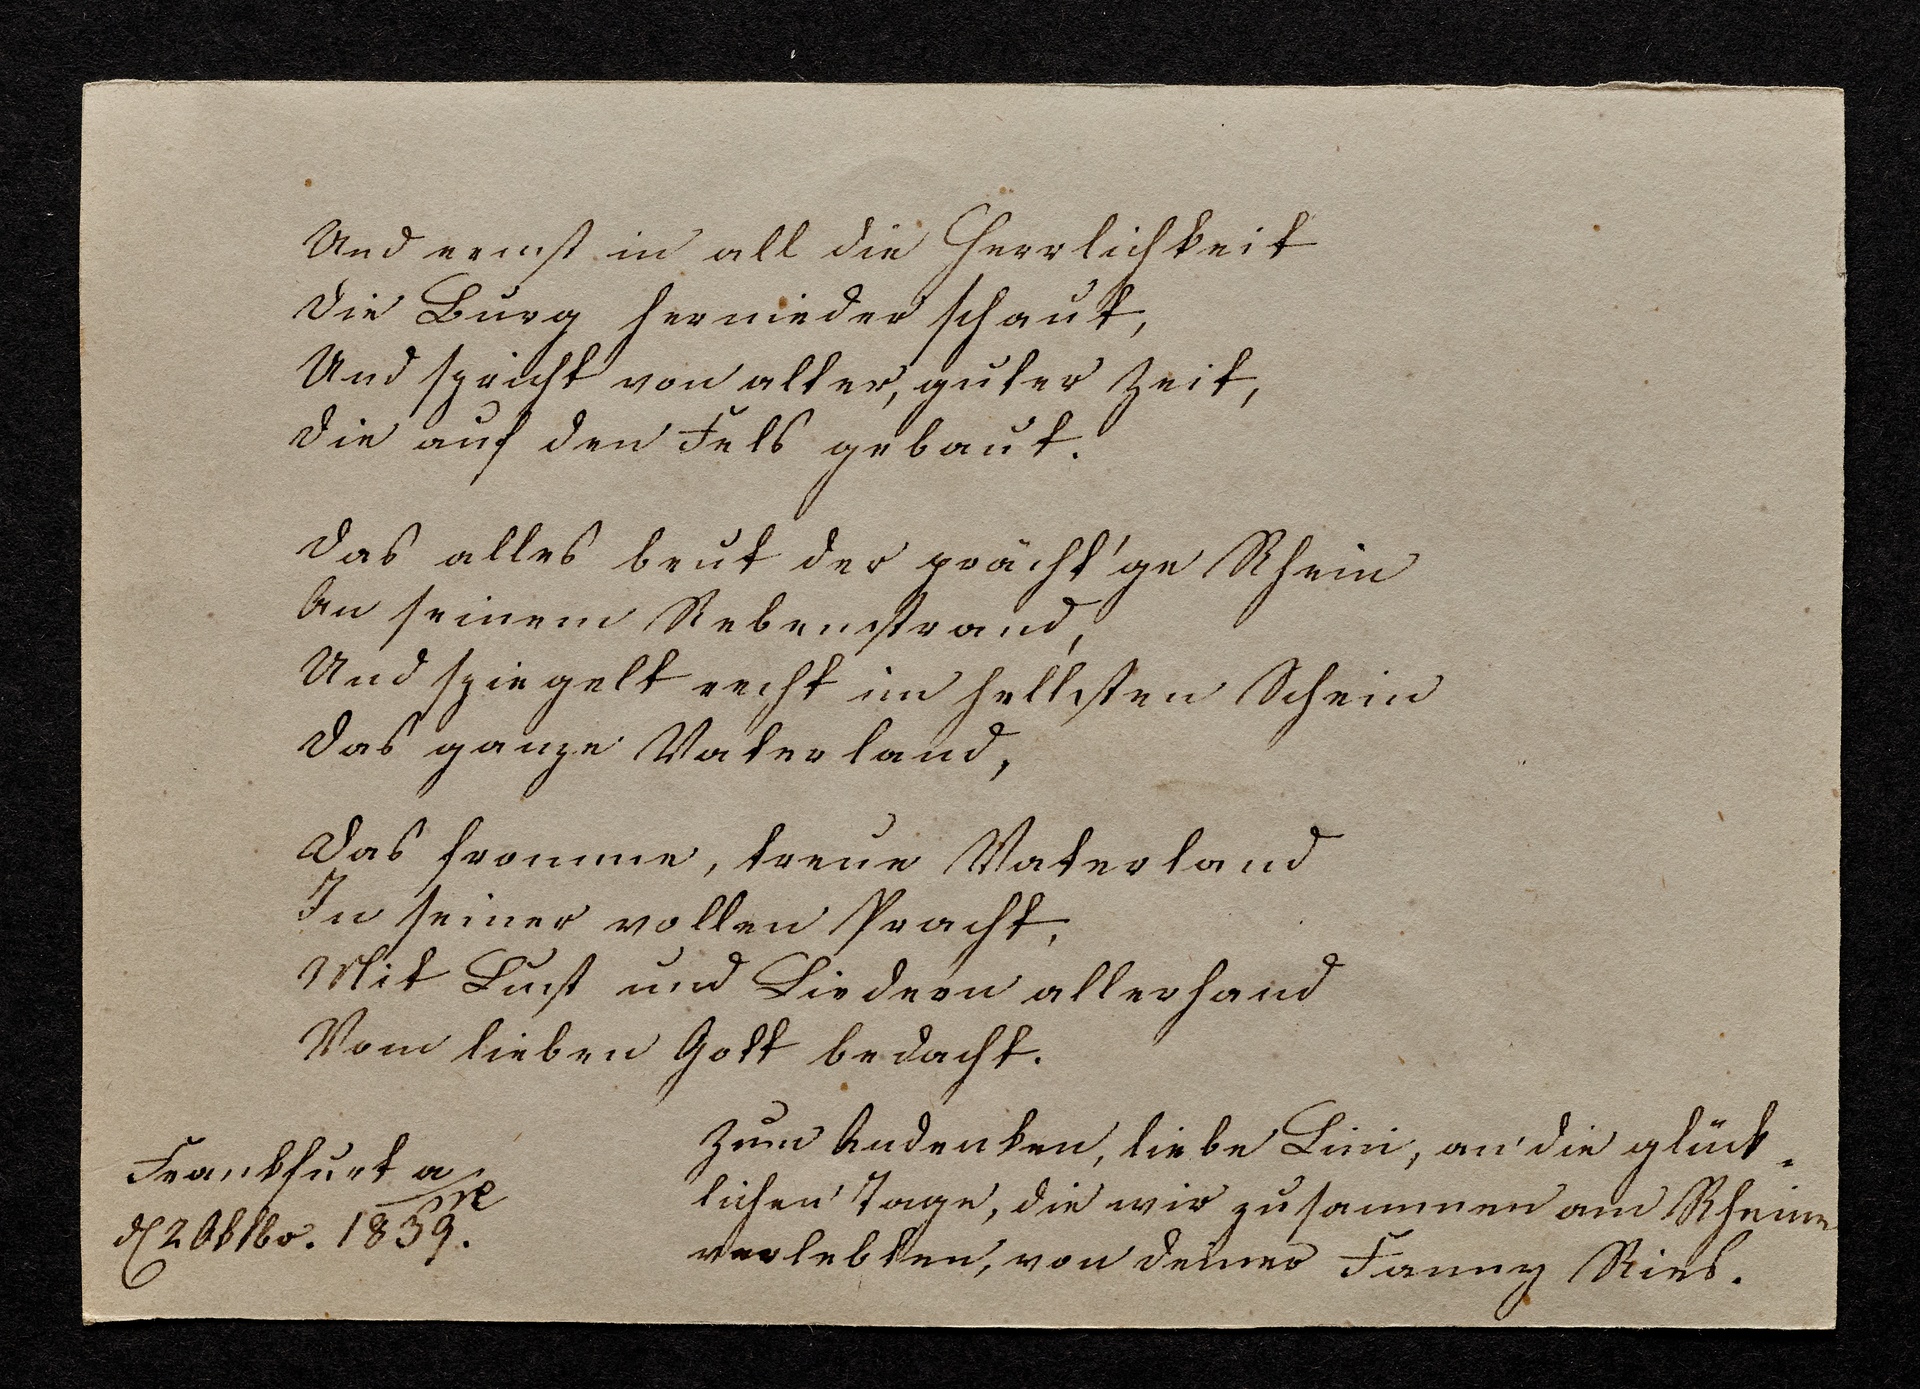 Und ernst in all die Herrlichkeit
Die Burg hernieder schaut,
Und spricht von alter, guter Zeit,
Die auf den Fels gebaut.
Das alles beut der prächt'ge Rhein
An seinem Rebenstrand,
Und spiegelt recht im hellsten Schein
Das ganze Vaterland,
Das fromme, treue Vaterland
In seiner vollen Pracht,
Mit Lust und Liedern allerhand
Vom lieben Gott bedacht.
Zum Andenken, liebe Lini, an die glück-
lichen Tage, die wir zusammen am Rheine
verlebten, von deiner Fanny Ries.
Frankfurt a/M
d 2 Oktbr. 1839.